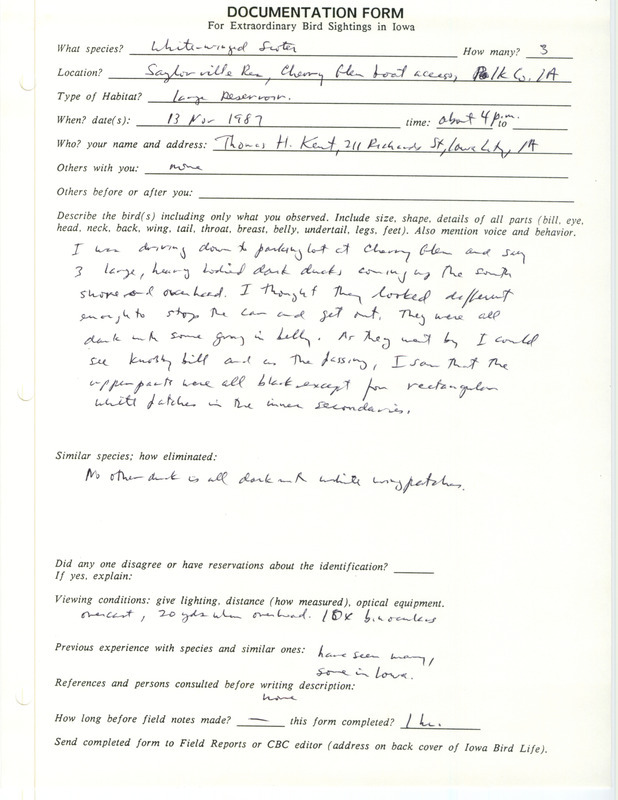 DOCUMENTATION FORM
For Extraordinary Bird Sightings in Iowa
What species? White-winged Scoter How many? 3
Location? Saylorville Res, Cherry Glen boat access, Polk Co. IA
Type of Habitat? large Reservoir.
When? date(s): 13 Nov 1987 time: about 4 p.m. to
Who? your name and address: Thomas H. Kent, 211 Richards St, Iowa City, IA
Others with you: none
Others before or after you:
Describe the bird(s) including only what you observed. Include size, shape, details of all parts (bill, eye,
head, neck, back, wing, tail, throat, breast, belly, undertail, legs, feet). Also mention voice and behavior.
I was driving down to parking lot at Cherry Glen and saw
3 large, heavy bodied dark ducks coming up the south
shore and overhead. I thought they looked different
enough to stop the car and get out. They were all
dark with some gray in belly. As they went by I could
see knobby bill and as the passing, I saw that the
upperparts were all black except for rectangular
white patches in the inner secondaries.
Similar species; how eliminated:
No other duck is all dark with white wing patches.
Did any one disagree or have reservations about the identification?
If yes, explain:
Viewing conditions: give lighting, distance (how measured), optical equipment.
overcast, 20 yds when overhead. 10x binoculars
Previous experience with species and similar ones: have seen many,
some in Iowa.
References and persons consulted before writing description:
none
How long before field notes made? — this form completed? 1 hr.
Send completed form to Field Reports or CBC editor (address on back cover of Iowa Bird Life).